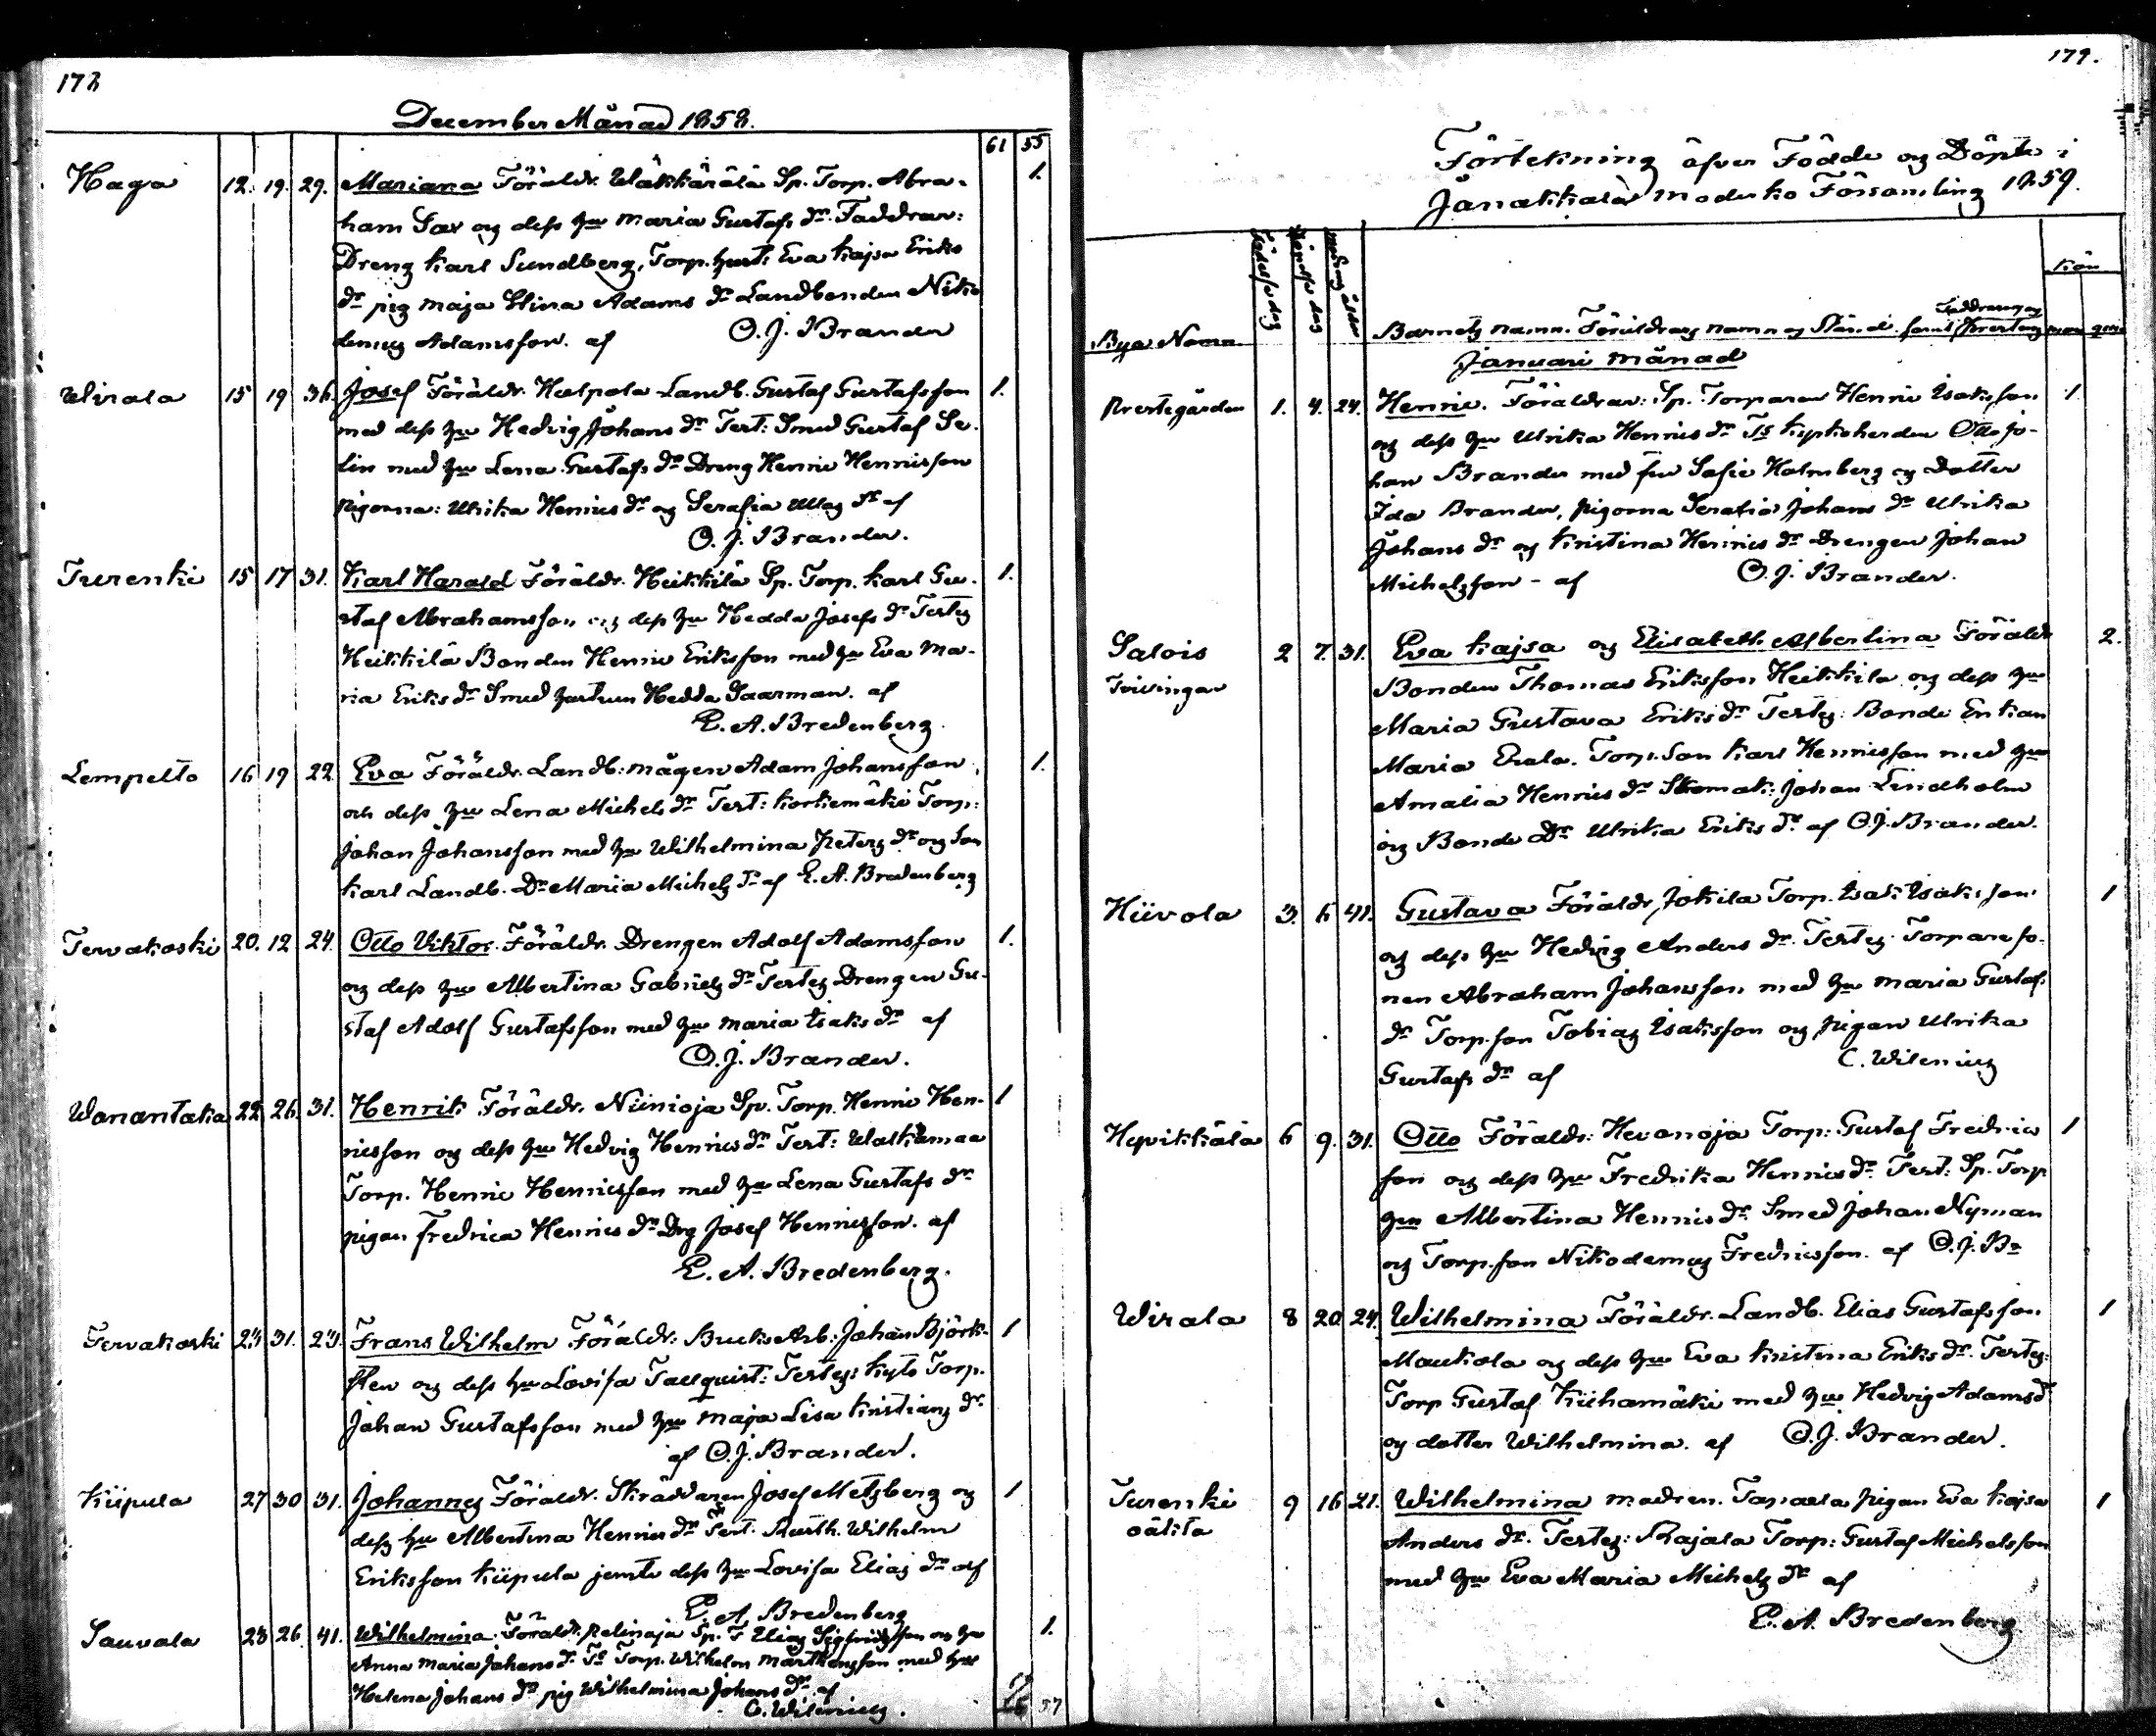 178
December Månad 1858.
61 55
Haga 12. 19. 29. Mariana Föräldr. Wäkkärälä Sp. Torp. Abra- 1.
ham Sax og dess hu Maria Gustafs dr. Faddrar:
Dreng Karl Sundberg, Torp. hust: Eva Kajsa Eriks
dr pig Maja Stina Adams dr Landbonden Niko
demus Adamsson. af O. J. Brander
Wirala 15 19 36. Josef Föräldr. Landb. Gustaf Gustafsson 1.
med dess hu Hedvig Johans dr Test: Smed Gustaf Se-
lin med hu Lena Gustafs dr Dreng Henric Henricsson
pigorna: Ulrika Henrics dr og Serafia dr af
O. J. Brander.
Turenki 15 17 31. Karl Harald Föräldr. Heikkilä Sp. Torp. Karl Gu- 1.
staf Abrahamsson og dess hu Hedda Josefs dr Testes
Heikkilä Bonden Henric Eriksson med hu Eva Ma-
ria Eriks dr Smed hustrun Hedda Saarman. af
E. A. Bredenberg.
Lempelto 16 19 22. Eva Föräldr. Landb: mågen Adam Johansson 1.
och dess hu Lena Michels dr Test: Korkiemäki Torp:
Johan Johansson med hu Wilhelmina Peters dr og Son
Karl Landb. Dr Maria Michels dr af E. A. Bredenberg
Tervakoski 20. 12 24. Otto Viktor. Föräldr. Drengen Adolf Adamsson 1.
og dess hu Albertina Gabriels dr Testes Drengen Gu-
staf Adolf Gustafsson med hu Maria Isaks dr af
O. J. Brander.
Wanantaka 22. 26. 31. Henrik Föräldr. Niinioja Sp. Torp. Henric Hen- 1
ricsson og dess hu Hedvig Henrics dr Test: Walkiamaa
Torp. Henric Henricsson med hu Lena Gustafs dr
pigan Fredrica Henrics dr Drg Josef Henricsson. af
E. A. Bredenberg.
Tervakoski 23 31. 23. Frans Wilhelm Föräldr: Bruks Arb: Johan Björk- 1
sten og dess hu Lovisa Taelquist: Testes: Kyto Torp.
Johan Gustafsson med hu Maja Lisa Kristians dr
af O. J. Brander.
Kiipula 27 30 31. Johannes Föräldr. Skräddaren Josef Metzberg og 1
dess hu Albertina Henrics dr Test: Rusth. Wilhelm
Eriksson Kiipula jemte dess hu Lovisa Elias dr af
E. A. Bredenberg
Sauvala 23 26 41. Wilhelmina Föräldr. Pelinoja Sp. T Elias Sigfridsson og hu 1.
Anna Maria Johans dr Ts Torp. Wilhelm med hu
Helena Johans dr pig Wilhelmina Johans dr af
C. Wilenius.
57
179.
Förtekning öfver Födde og Döpte i
Janakkala moderko Församling 1859.
Födelse dag
modrens ålder
Kön
Faddrarnas
Bya Namn Barnets namn. Föräldrars namn og Stånd. samt Prestens man qvin
Januari månad
Prestegården 1. 4. 24. Henric. Föräldrar: Sp. Torparen Henric Isaksson 1
og dess hu Ulrika Henrics dr Ts Kyrkoherden Otto Jo-
han Brander med fru Sofie Holmberg og Dotter
Ida Brander, pigorna Serafia Johans dr Ulrika
Johans dr og Kristina Henrics dr Drengen Johan
Michelsson - af O. J. Brander.
Salois 2 7. 31. Eva Kajsa og Elisabeth Albertina Föräldr 2.
Tvivingar Bonden Thomas Eriksson Heikkilä og dess hu
Maria Gustava Eriks dr Testes: Bonde Enkan
Maria Erola. Torp. Son Karl Henricsson med hu
Amalia Henrics dr Skomak: Johan Lindholm
og Bonde Dr Ulrika Eriks dr af O. J. Brander.
Hiivola 3. 6 41. Gustava Föräldr Jokila Torp. Isak Isaksson 1
og dess hu Hedvig Anders dr. Testes Torpare so-
nen Abraham Johansson med hu Maria Gustafs
dr Torp. son Tobias Isaksson og pigan Ulrika
Gustafs dr af C. Wilenius
Hyvikkälä 6 9. 31. Otto Föräldr: Hevonoja Torp: Gustaf Fredrics 1
son og dess hu Fredrika Henrics dr Test: Sp. Torp
hu Albertina Henrics dr Smed Johan Nyman
og Torp. son Nikodemus Fredricsson. af O. J. Br
Wirala 8 20 24. Wilhelmina Föräldr. Landb. Elias Gustafsson 1
Maukola og dess hu Eva Kristina Eriks dr. Testes:
Torp Gustaf Kiihamäki med hu Hedvig Adams dr
og dotter Wilhelmina. af O. J. Brander.
Turenki 9 16 21. Wilhelmina modren. Tapaela pigan Eva Kajsa 1
oäkta Anders dr. Testes: Rajala Torp: Gustaf Michelsson
med hu Eva Maria Michels dr af
E. A. Bredenberg